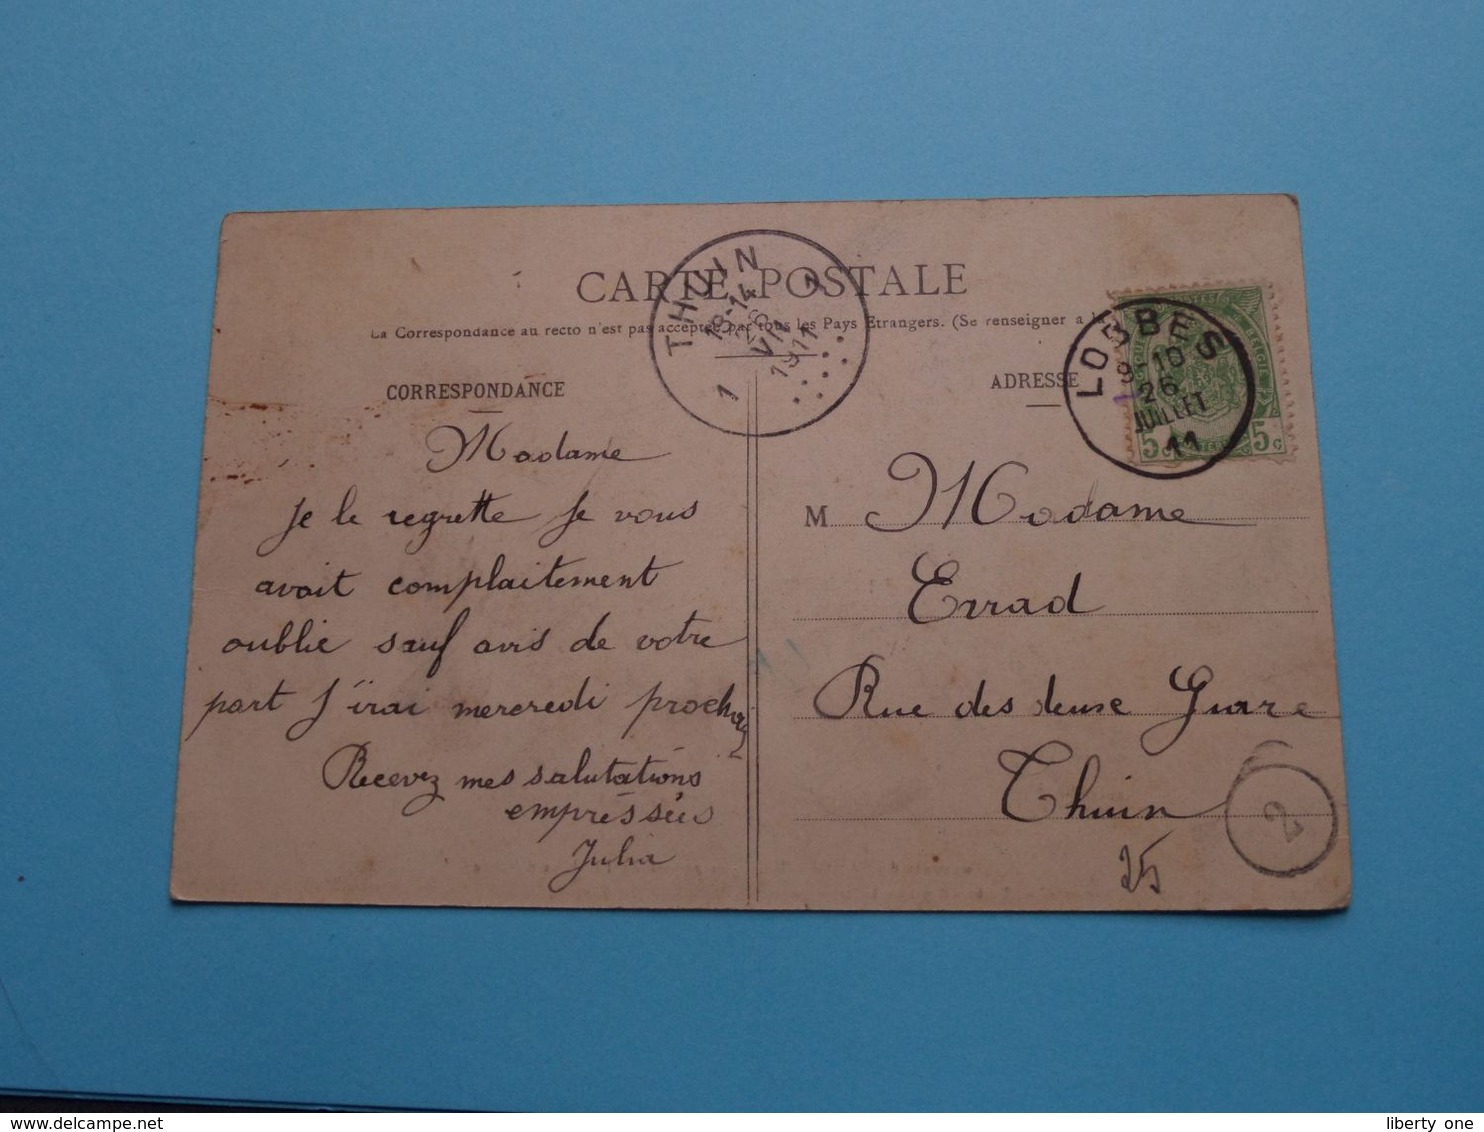 CARTE POSTALE
La Correspondance au recto n'est pas acceptée par tous les Pays Etrangers. (Se renseigner a
THUIN
18-14
26
VII
1911
1 1
LOBBES
8-10
26
JUILLET
11
5 c 5 c
CORRESPONDANCE
ADRESSE
Madame
Je le regrette Je vous
avait complaitement
oublié sauf avis de votre
part J'irai mercredi prochai
Recevez mes salutations
empréssées
Julia
M Madame
Errad
Rue des deuse Guare
Thuin
2
25
liberty one